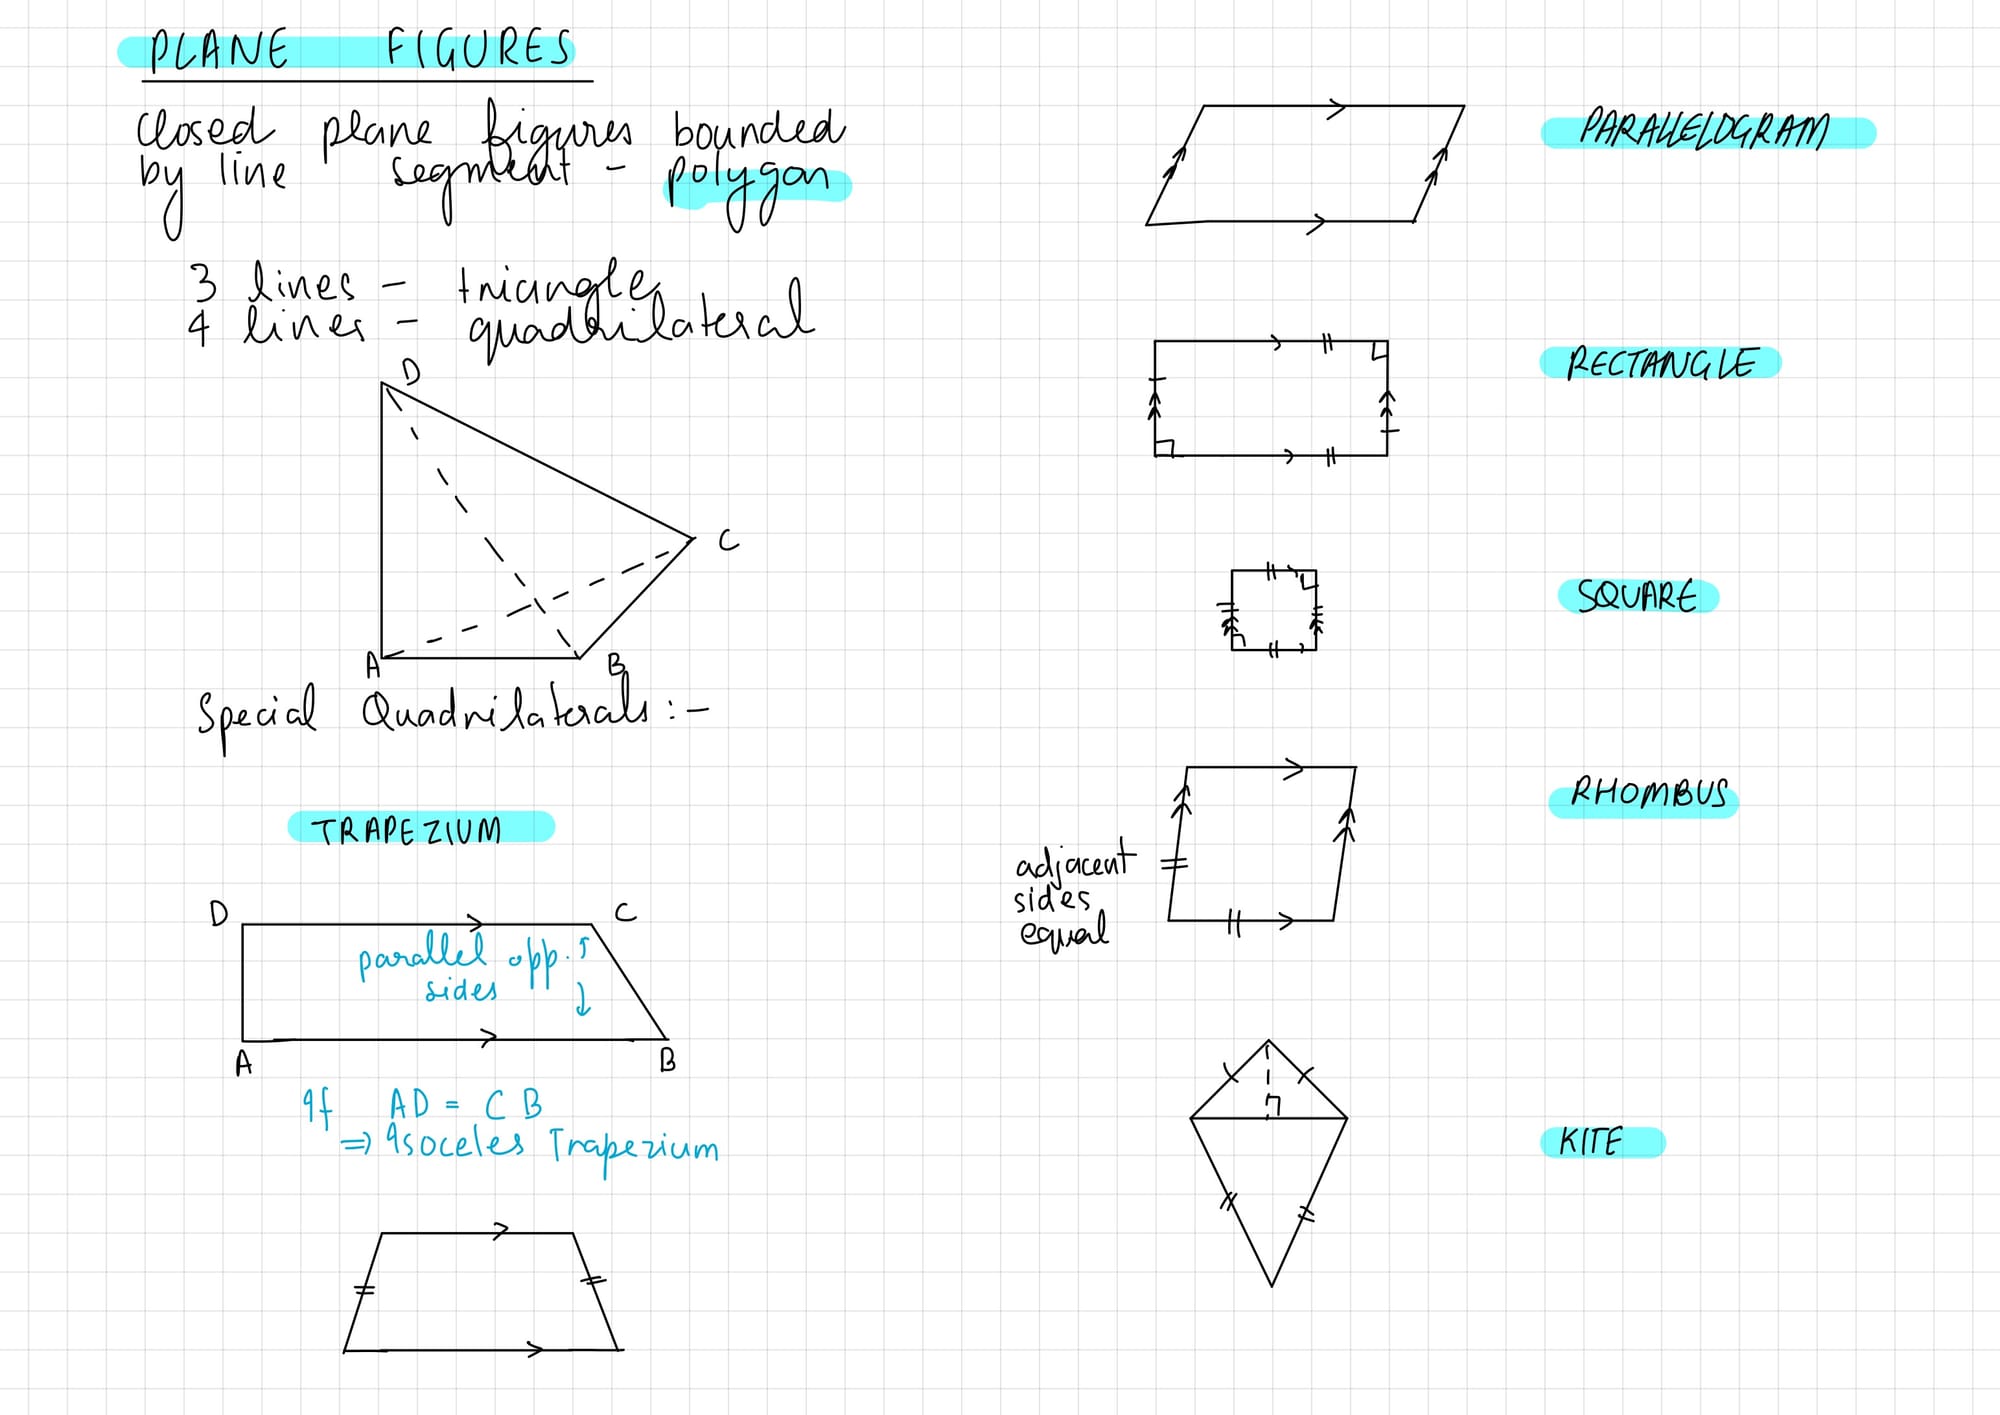 PLANE FIGURES
closed plane figures bounded
by line segment - polygon
3 lines - triangle
4 lines - quadrilateral
D
C
A
B
Special Quadrilaterals :-
TRAPEZIUM
D
C
parallel opp.
sides
A
B
If AD = CB
⇒ Isoceles Trapezium
PARALLELOGRAM
RECTANGLE
SQUARE
RHOMBUS
adjacent
sides
equal
KITE